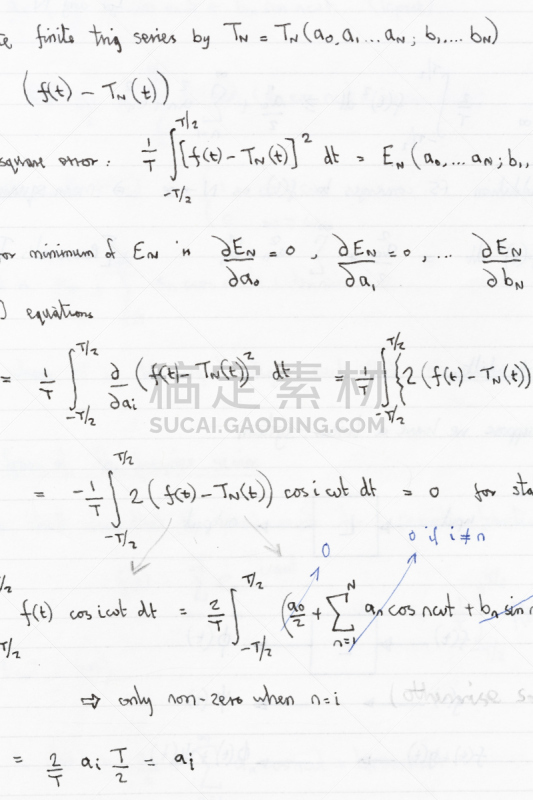 finite trig series by T_N = T_N(a_0, a_1 ... a_N ; b_1 ... b_N)
(f(t) - T_N(t))
square error: 1/T ∫_{-T/2}^{T/2} [f(t) - T_N(t)]^2 dt = E_N(a_0, ... a_N; b_1,
for minimum of E_N is ∂E_N/∂a_0 = 0, ∂E_N/∂a_1 = 0, ... ∂E_N/∂b_N
) equations
= 1/T ∫_{-T/2}^{T/2} ∂/∂a_i (f(t) - T_N(t))^2 dt = 1/T ∫_{-T/2}^{T/2} {2(f(t) - T_N(t))
稿定素材
SUCAI.GAODING.COM
= -1/T ∫_{-T/2}^{T/2} 2(f(t) - T_N(t)) cos iωt dt = 0 for sta
0 0 if i≠n
T/2 f(t) cos iωt dt = 2/T ∫_{-T/2}^{T/2} (a_0/2 + ∑_{n=1}^{N} a_n cos nωt + b_n sin n
⇒ only non-zero when n=i
= 2/T a_i T/2 = a_i